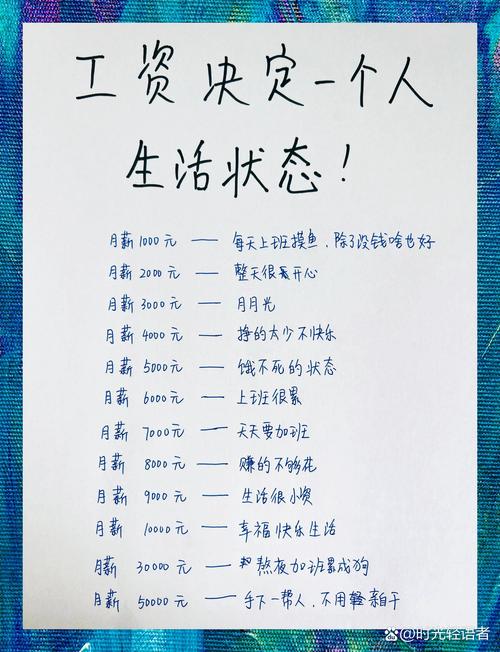 工资决定一个人
生活状态！
月薪1000元 — 每天上班摸鱼，除了没钱啥也好
月薪2000元 — 整天很开心
月薪3000元 — 月月光
月薪4000元 — 挣的太少不快乐
月薪5000元 — 饿不死的状态
月薪6000元 — 上班很累
月薪7000元 — 天天要加班
月薪8000元 — 赚的不够花
月薪9000元 — 生活很小资
月薪10000元 — 幸福快乐生活
月薪30000元 — 熬夜加班累成狗
月薪50000元 — 手下一帮人，不用亲自干
@时光轻语者